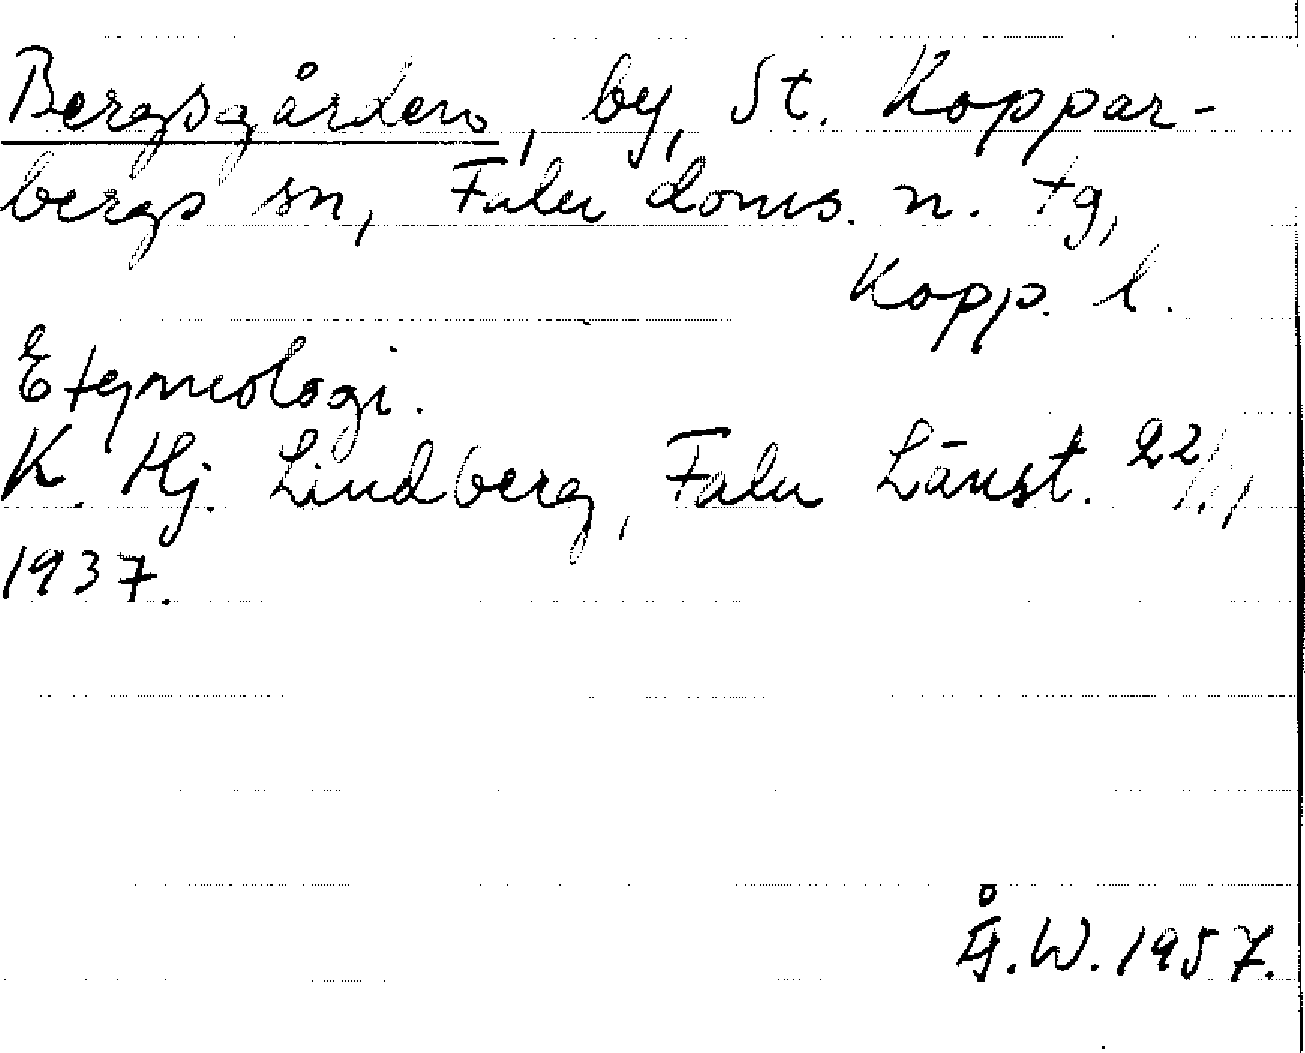 Bergsgården, by, St. Koppar-
bergs sn, Falu doms. n. tg,
Kopp. l.
Etymologi.
K. Hj. Lindberg, Falu Länst. 22/
1937.
Å.W. 1957.